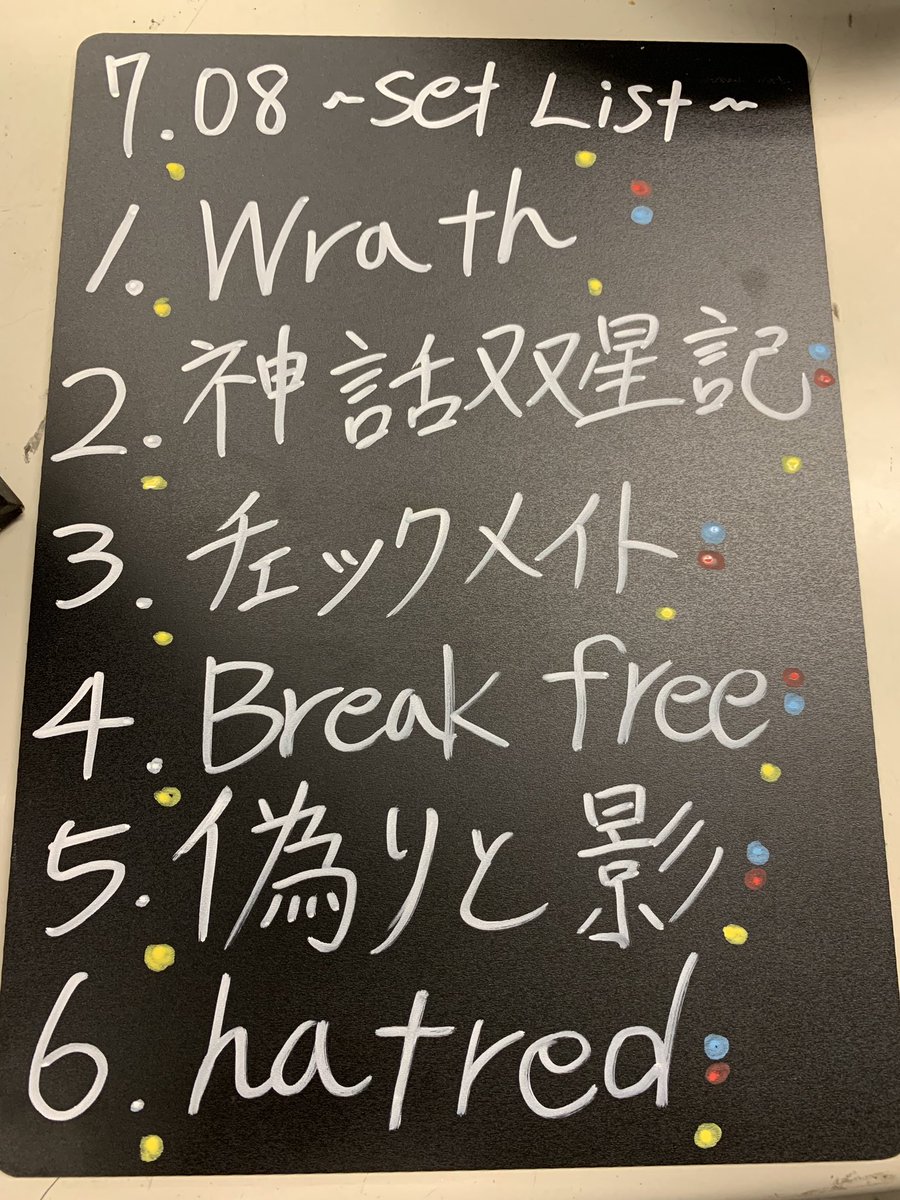 7.08 ~Set List~
1. Wrath
2. 神話双星記
3. チェックメイト
4. Break free
5. 偽りと影
6. hatred